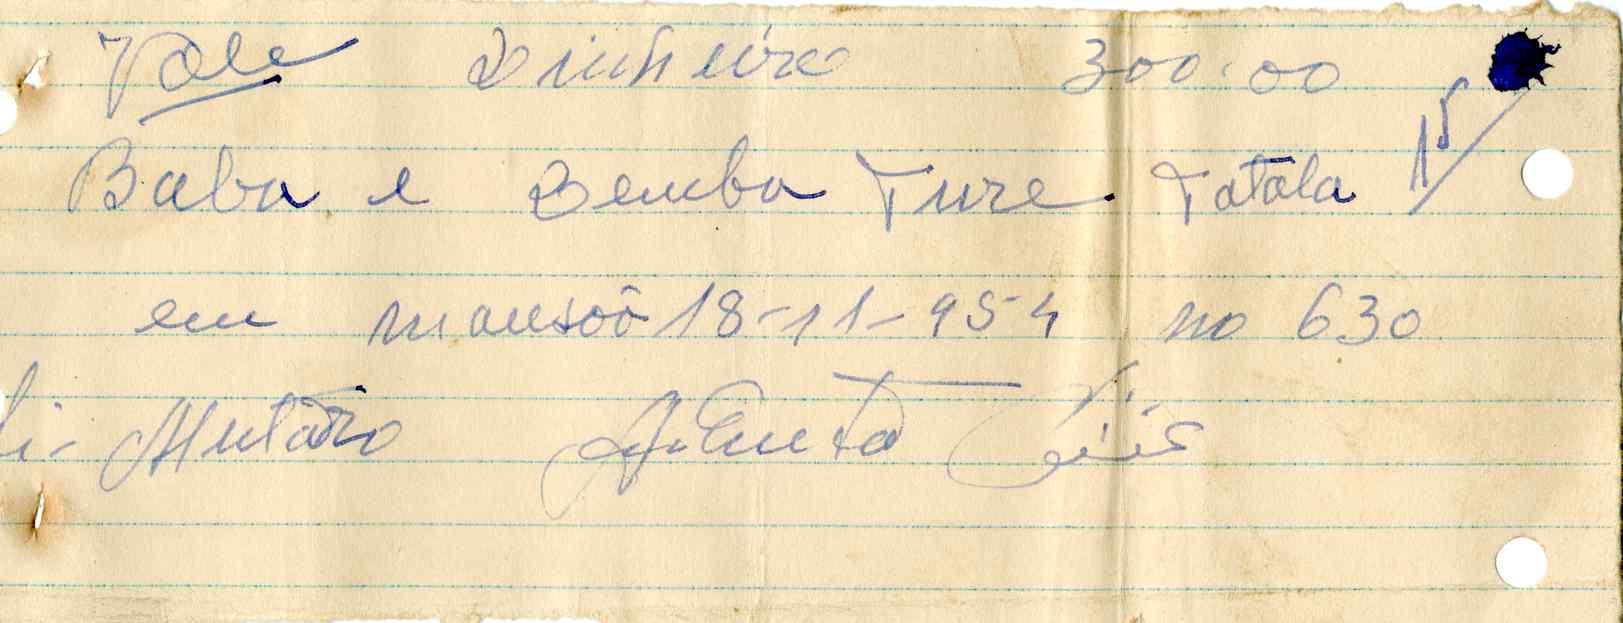 Vale Dinheiro 300.00
Baba e Demba Ture Tatala 15/
em mansoô 18-11-954 no 630
li- Mutaro